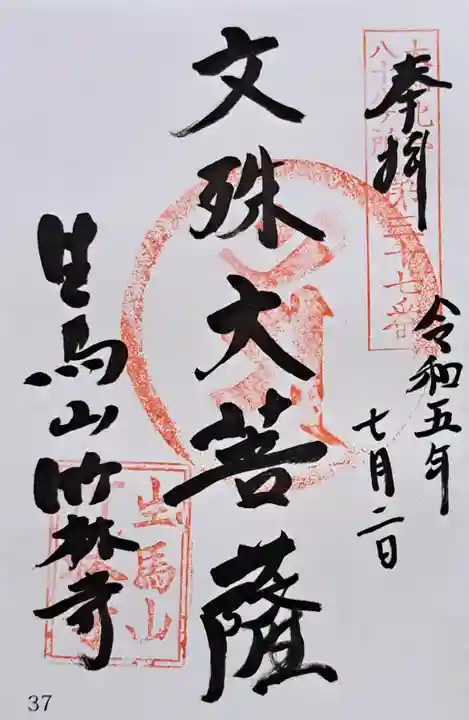 奉拝
八十八ヶ所第三十七番
令和五年
七月二日
文殊大菩薩
生馬山竹林寺
生馬山
37